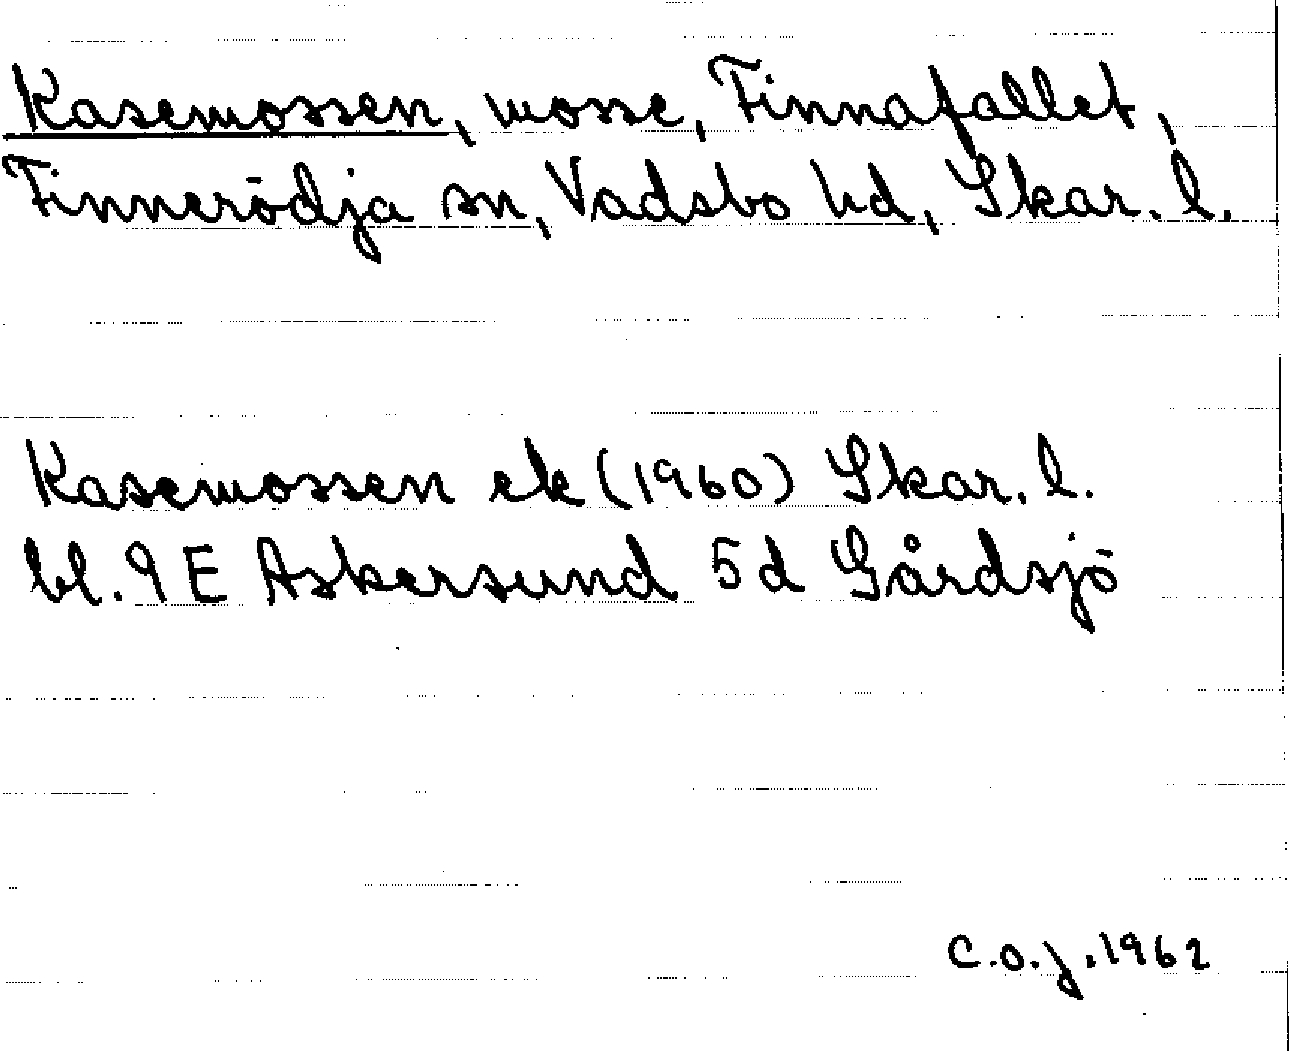 Kasemossen, mosse, Finnafallet,
Finnerödja sn, Vadsbo hd, Skar. l.
Kasemossen ek (1960) Skar. l.
bl. 9 E Askersund 5 d Gårdsjö
C.O.J. 1962